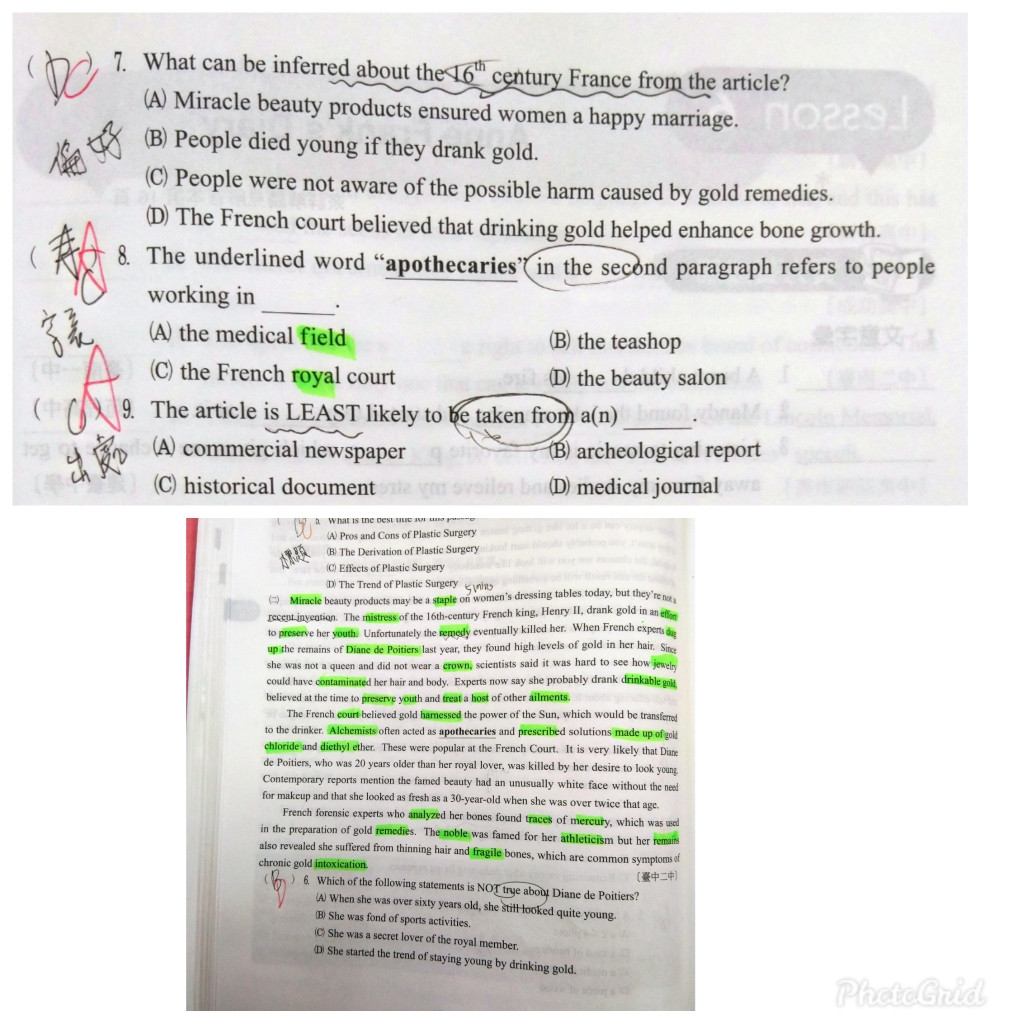 7. What can be inferred about the 16th century France from the article?
(A) Miracle beauty products ensured women a happy marriage.
(B) People died young if they drank gold.
偏好
(C) People were not aware of the possible harm caused by gold remedies.
(D) The French court believed that drinking gold helped enhance bone growth.
( A 8. The underlined word “apothecaries” in the second paragraph refers to people
working in ______.
字義
(A) the medical field (B) the teashop
(C) the French royal court (D) the beauty salon
( A 9. The article is LEAST likely to be taken from a(n) ______.
出處
(A) commercial newspaper (B) archeological report
(C) historical document (D) medical journal
What is the best title for this
(A) Pros and Cons of Plastic Surgery
(B) The Derivation of Plastic Surgery
(C) Effects of Plastic Surgery
(D) The Trend of Plastic Surgery
(二) Miracle beauty products may be a staple on women’s dressing tables today, but they’re not a
recent invention. The mistress of the 16th-century French king, Henry II, drank gold in an effort
to preserve her youth. Unfortunately the remedy eventually killed her. When French experts dug
up the remains of Diane de Poitiers last year, they found high levels of gold in her hair. Since
she was not a queen and did not wear a crown, scientists said it was hard to see how jewelry
could have contaminated her hair and body. Experts now say she probably drank drinkable gold,
believed at the time to preserve youth and treat a host of other ailments.
The French court believed gold harnessed the power of the Sun, which would be transferred
to the drinker. Alchemists often acted as apothecaries and prescribed solutions made up of gold
chloride and diethyl ether. These were popular at the French Court. It is very likely that Diane
de Poitiers, who was 20 years older than her royal lover, was killed by her desire to look young.
Contemporary reports mention the famed beauty had an unusually white face without the need
for makeup and that she looked as fresh as a 30-year-old when she was over twice that age.
French forensic experts who analyzed her bones found traces of mercury, which was used
in the preparation of gold remedies. The noble was famed for her athleticism but her remains
also revealed she suffered from thinning hair and fragile bones, which are common symptoms of
chronic gold intoxication.
〔臺中二中〕
( B ) 6. Which of the following statements is NOT true about Diane de Poitiers?
(A) When she was over sixty years old, she still looked quite young.
(B) She was fond of sports activities.
(C) She was a secret lover of the royal member.
(D) She started the trend of staying young by drinking gold.
PhotoGrid